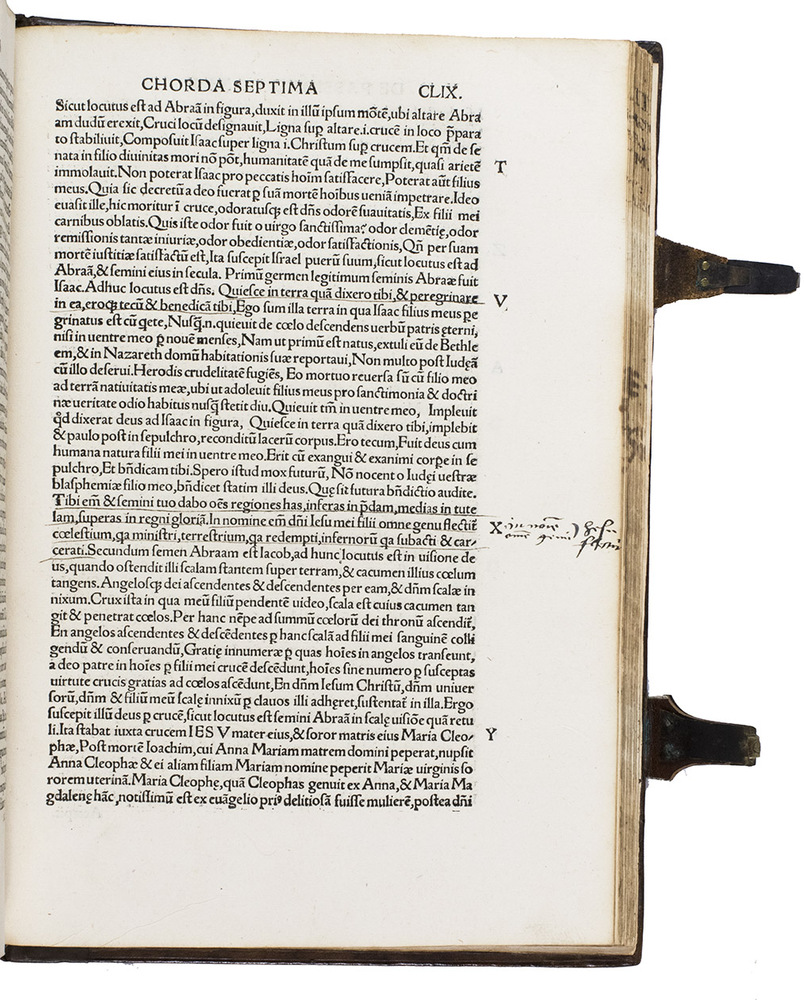 CHORDA SEPTIMA CLIX.
Sicut locutus est ad Abraã in figura, duxit in illũ ipsum mõtẽ, ubi altare Abra
am dudũ erexit, Cruci locũ designauit, Ligna sup altare.i.crucẽ in loco p̃para
to stabiliuit, Composuit Isaac super ligna i. Christum sup crucem. Et qm̃ de se
nata in filio diuinitas mori nõ põt, humanitatẽ quã de me sumpsit, quasi arietẽ T
immolauit. Non poterat Isaac pro peccatis hoĩm satisfacere, Poterat aũt filius
meus. Quia sic decretũ a deo fuerat p suã mortẽ hoĩbus ueniã impetrare. Ideo
euasit ille, hic moritur ĩ cruce, odoratusq; est dñs odorẽ suauitatis, Ex filii mei
carnibus oblatis. Quis iste odor fuit o uirgo sanctissima? odor clemẽtię, odor
remissionis tantæ iniuriæ, odor obedientiæ, odor satisfactionis, Qñ per suam
mortẽ iustitiæ satisfactũ est, Ita suscepit Israel puerũ suum, sicut locutus est ad
Abraã, & semini eius in secula. Primũ germen legitimum seminis Abraæ fuit
Isaac. Adhuc locutus est dñs. Quiesce in terra quã dixero tibi, & peregrinare
in ea, eroq; tecũ & benedicã tibi, Ego sum illa terra in qua Isaac filius meus pe V
grinatus est cũ q̃ete, Nusq̃.n.quieuit de cœlo descendens uerbũ patris ęterni,
nisi in uentre meo p nouẽ menses, Nam ut primũ est natus, extuli eũ de Bethle
em, & in Nazareth domũ habitationis suæ reportaui, Non multo post Iudęã
cũ illo deserui. Herodis crudelitatẽ fugiẽs, Eo mortuo reuersa sũ cũ filio meo
ad terrã natiuitatis meæ, ubi ut adoleuit filius meus pro sanctimonia & doctri
næ ueritate odio habitus nusq̃ stetit diu. Quieuit tm̃ in uentre meo, Impleuit
qd dixerat deus ad Isaac in figura, Quiesce in terra quã dixero tibi, implebit
& paulo post in sepulchro, reconditũ lacerũ corpus. Ero tecum, Fuit deus cum
humana natura filii mei in uentre meo. Erit cũ exangui & exanimi corpe in se
pulchro, Et bñdicam tibi. Spero istud mox futurũ, Nõ nocent o Iudęi uestræ
blasphemiæ filio meo, bñdicet statim illi deus. Quę sit futura bñdictio audite.
Tibi em̃ & semini tuo dabo oẽs regiones has, inferas in p̃dam, medias in tute
lam, superas in regni gloriã. In nomine em̃ dñi Iesu mei filii omne genu flectit̃ X
cœlestium, qa ministri, terrestrium, qa redempti, infernorũ qa subacti & car
cerati. Secundum semen Abraam est Iacob, ad hunc locutus est in uisione de
us, quando ostendit illi scalam stantem super terram, & cacumen illius cœlum
tangens. Angelosq; dei ascendentes & descendentes per eam, & dñm scalæ in
nixum. Crux ista in qua meũ filiũ pendentẽ uideo, scala est cuius cacumen tan
git & penetrat cœlos. Per hanc nẽpe ad summũ cœlorũ dei thronũ ascendit̃,
En angelos ascendentes & descẽdentes p hanc scalã ad filii mei sanguinẽ colli
gendũ & conseruandũ, Gratię innumeræ p quas hoĩes in angelos transeunt,
a deo patre in hoĩes p filii mei crucẽ descẽdunt, hoĩes sine numero p susceptas
uirtute crucis gratias ad cœlos ascẽdunt, En dñm Iesum Christũ, dñm uniuer
sorũ, dñm & filiũ meũ scalę innixũ p clauos illi adhęret, sustentat̃ in illa. Ergo
suscepit illũ deus p crucẽ, sicut locutus est semini Abraã in scalę uisiõe quã retu
li. Ita stabat iuxta crucem IESV mater eius, & soror matris eius Maria Cleo/ Y
phæ, Post mortẽ Ioachim, cui Anna Mariam matrem domini peperat, nupsit
Anna Cleophæ & ei aliam filiam Mariam nomine peperit Mariæ uirginis so
rorem uterinã. Maria Cleophę, quã Cleophas genuit ex Anna, & Maria Ma
gdalenę hãc, notissimũ est ex euãgelio pri⁹ delitiosã fuisse mulierẽ, postea dñi